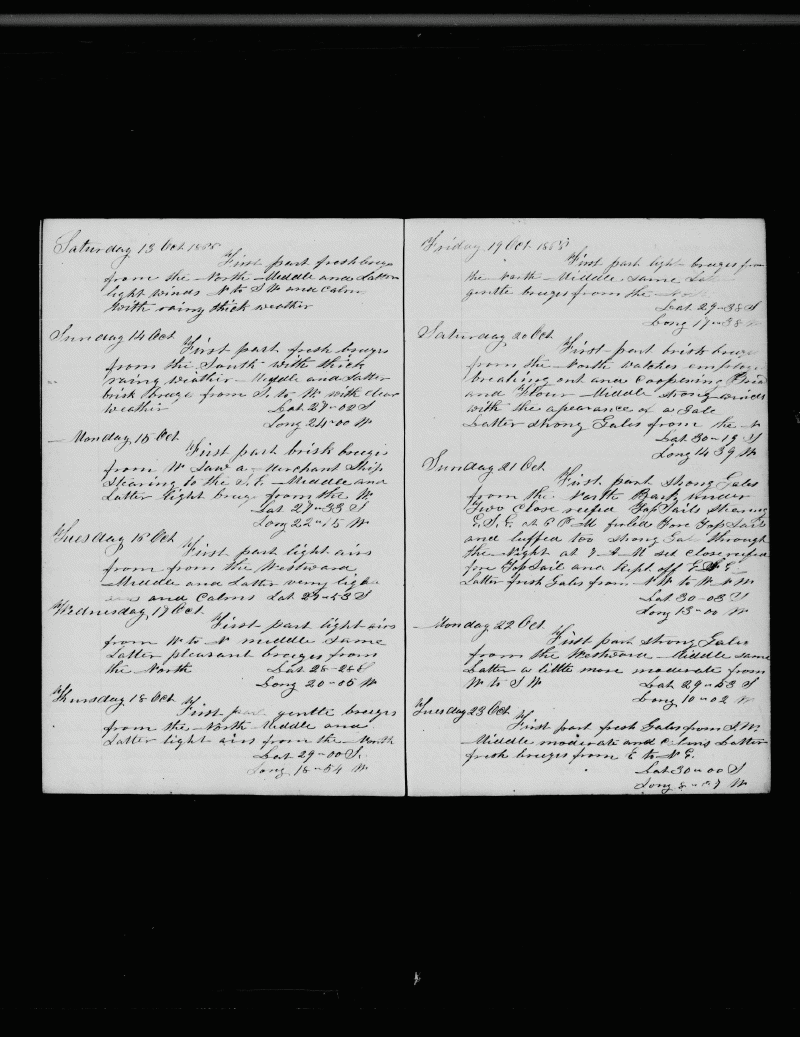 Saturday 13 Oct 1855
First part fresh breeze
from the North Middle and Latter
light winds N to S W and calm
with rainy thick weather
Sunday 14 Oct
First part fresh breezes
from the South with thick
rainy weather Middle and Latter
brisk breeze from S. to W with clear
weather Lat 27-02 S
Long 24-00 W
Monday 15 Oct
First part brisk breezes
from W Saw a Merchant Ship
stearing to the S.E. Middle and
Latter light breeze from the W
Lat 27-33 S
Long 22-15 W
Tuesday 16 Oct
First part light airs
from from the Westward
Middle and Latter very light
airs and Calms Lat 27-53 S
Wednesday 17 Oct
First part light airs
from W to N middle same
Latter pleasant breezes from
the North Lat 28-28 S
Long 20-05 W
Thursday 18 Oct
First part gentle breezes
from the North Middle and
Latter light airs from the North
Lat 29-00 S.
Long 18-54 W
Friday 19 Oct 1855
First part light breezes from
the North Middle same
gentle breezes from the
Lat 29-38 S
Long 17-38 W
Saturday 20 Oct
First part brisk breezes
from the North watches employed
breaking out and coopering Bread
and Flour Middle strong winds
with the apearance of a Gale
Latter strong Gales from the N
Lat 30-19 S
Long 14 39 W
Sunday 21 Oct
First part strong Gales
from the North Bark under
Two close reefed Top Sails stearing
E.S.E. at 6 P.M furled Fore Top Sail
and luffed too strong Gale through
the Night at 7 A M set close reefed
fore Top Sail and kept off
Latter fresh Gales from N W to W N W
Lat 30-03 S
Long 13-00 W
Monday 22 Oct
First part strong Gales
from the Westward Middle same
Latter a little more moderate from
W to S W Lat 29-53 S
Long 10-02 W
Tuesday 23 Oct
First part fresh Gales from S.W.
Middle moderate and calms Latter
fresh breezes from E to N E.
Lat 30-00 S
Long W